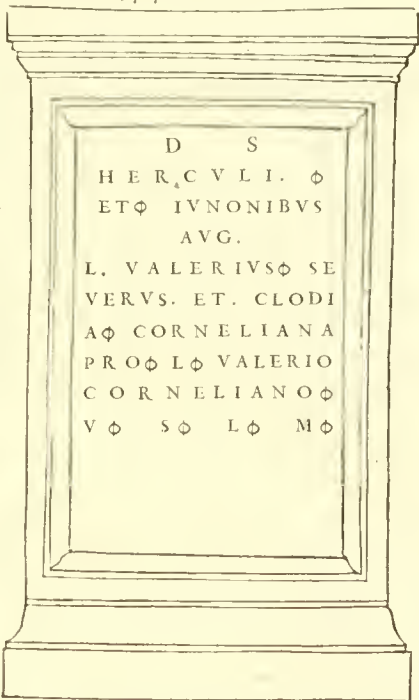 D S
HER.CVLI. Φ
ETΦ IVNONIBVS
AVG.
L. VALERIVSΦ SE
VERVS. ET. CLODI
AΦ CORNELIANA
PROΦ LΦ VALERIO
CORNELIANOΦ
VΦ SΦ LΦ MΦ